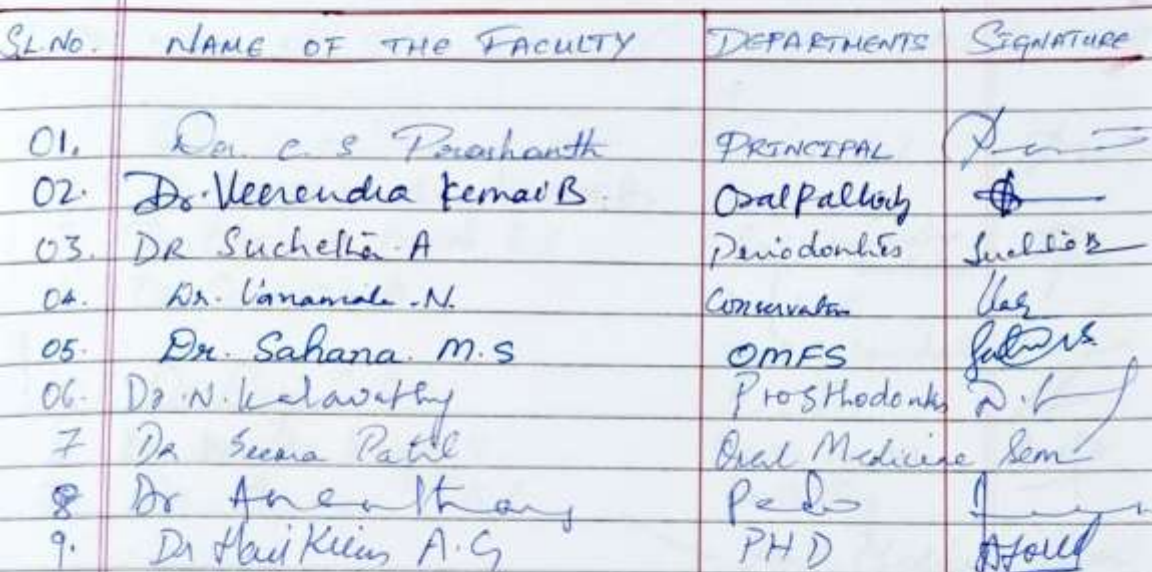 SL.NO. NAME OF THE FACULTY DEPARTMENTS SIGNATURE
01. Dr. C. S Prashanth PRINCIPAL
02. Dr. Veerendra Kumar B. Oral Pathology
03. DR Suchetha A Periodontics
04. Dr. Vanamala .N. Conservative
05. Dr. Sahana. M.S OMFS
06. Dr. N. Kalavathy Prosthodontics
7 Dr Seema Patil Oral Medicine
8 Dr Pedo
9. Dr Hari Kiran A.G PHD